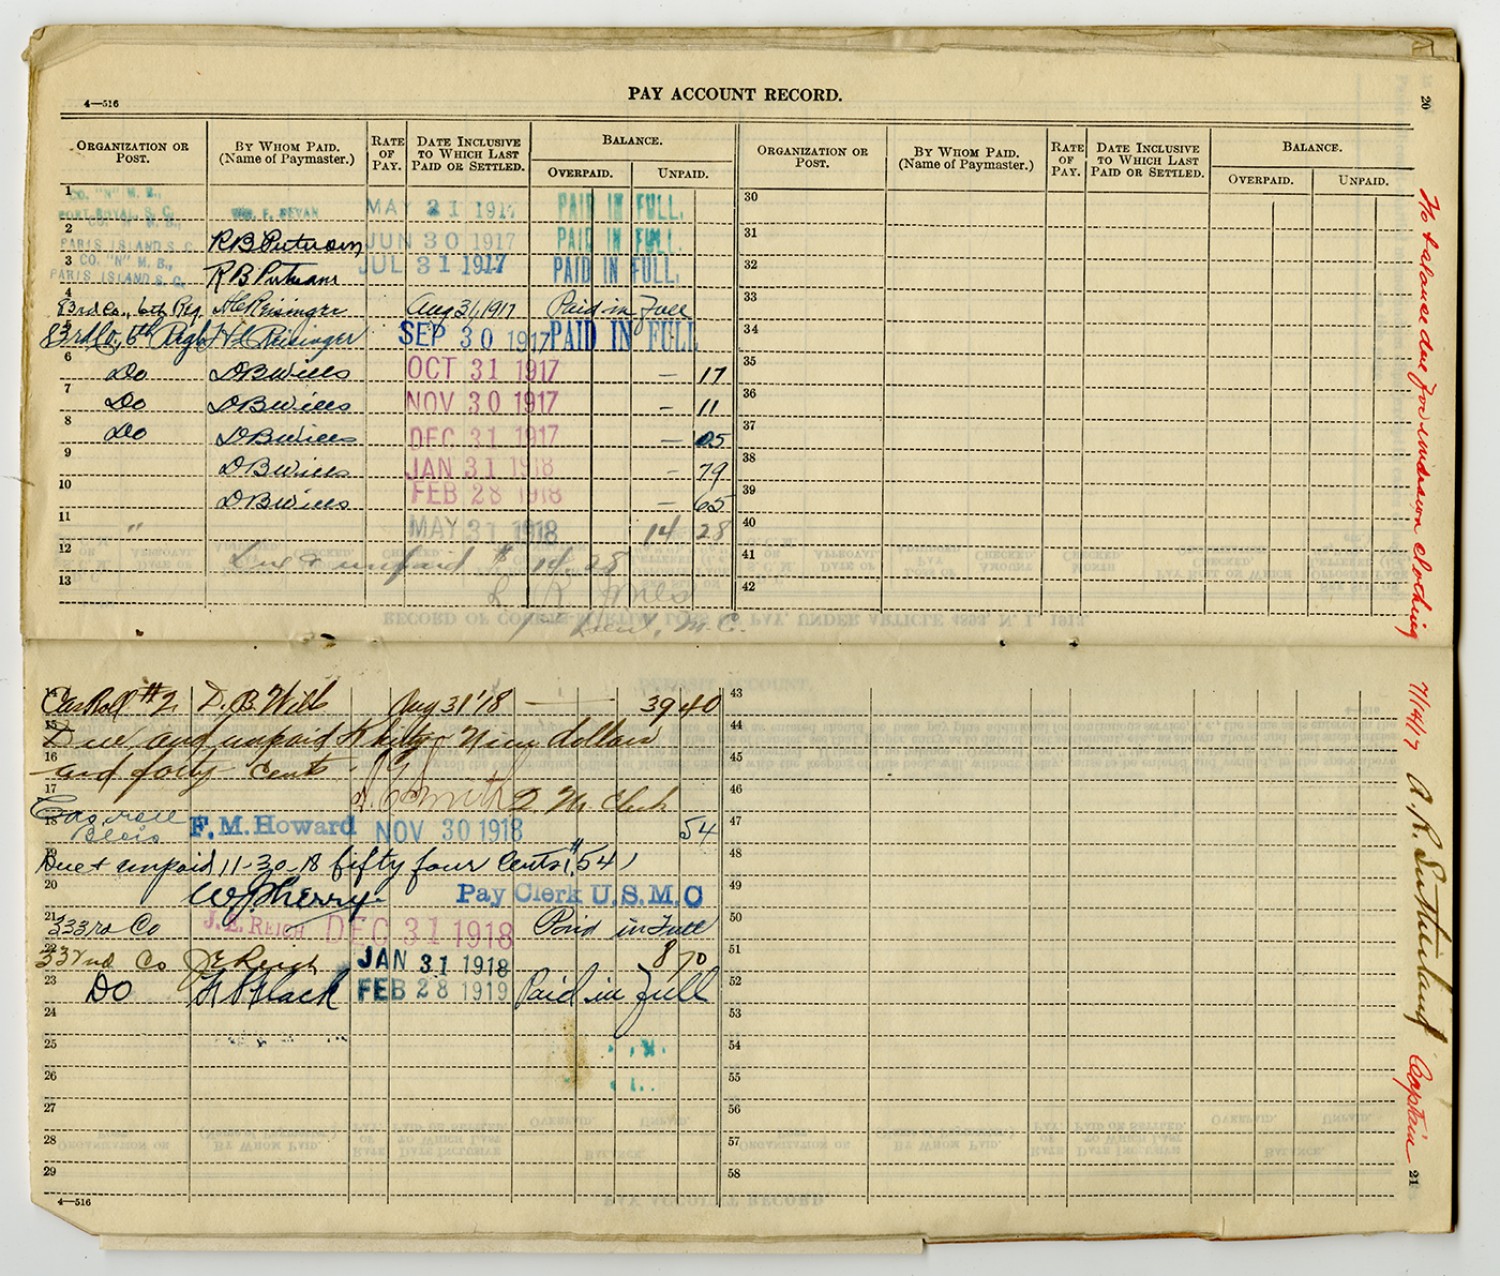 4—516
PAY ACCOUNT RECORD.
20
ORGANIZATION OR POST.
BY WHOM PAID. (Name of Paymaster.)
RATE OF PAY.
DATE INCLUSIVE TO WHICH LAST PAID OR SETTLED.
BALANCE.
OVERPAID.
UNPAID.
ORGANIZATION OR POST.
BY WHOM PAID. (Name of Paymaster.)
RATE OF PAY.
DATE INCLUSIVE TO WHICH LAST PAID OR SETTLED.
BALANCE.
OVERPAID.
UNPAID.
1 CO. "N" M. B., PORT ROYAL, S. C. F. BEVAN MAY 31 1917 PAID IN FULL. 30
2 PARIS ISLAND S. C. R B Putnam JUN 30 1917 PAID IN FULL. 31
3 CO. "N" M. B., PARIS ISLAND S. C. R B Putnam JUL 31 1917 PAID IN FULL. 32
4 83rd Co., 6th Reg H C Reisinger Aug 31, 1917 Paid in Full 33
83rd Co, 6th Reg H C Reisinger SEP 30 1917 PAID IN FULL 34
6 Do D B Wills OCT 31 1917 — 17 35
7 Do D B Wills NOV 30 1917 — 11 36
8 Do D B Wills DEC 31 1917 — 05 37
9 D B Wills JAN 31 1918 — 79 38
10 D B Wills FEB 28 1918 — 65 39
11 " MAY 31 1918 14 28 40
12 Due & unpaid $ 14 28 41
13 42
1st Lieut, M.C.
RECORD OF COURTS-MARTIAL LOSS OF PAY, UNDER ARTICLE 4893, N. I., 1913.
Cas Roll #2 D. B. Wills Aug 31 '18 — 39 40 43
15 Due and unpaid thirty nine dollars 44
16 and forty cents. 45
17 Smith Q. M. Clerk 46
18 Cas roll Blois F. M. Howard NOV 30 1918 54 47
19 Due & unpaid 11-30-18 fifty four cents ($.54) 48
20 W J Sherry Pay Clerk U. S. M. C 49
21 333rd Co J. E. REICH DEC 31 1918 Paid in Full 50
22 332nd Co J E Reich JAN 31 1918 8 70 51
23 Do Black FEB 28 1919 Paid in full 52
24 53
25 54
26 55
27 56
28 57
29 58
4—516
21
No balance due for undrawn clothing
7/14/17 A. R. Sutherland Captain